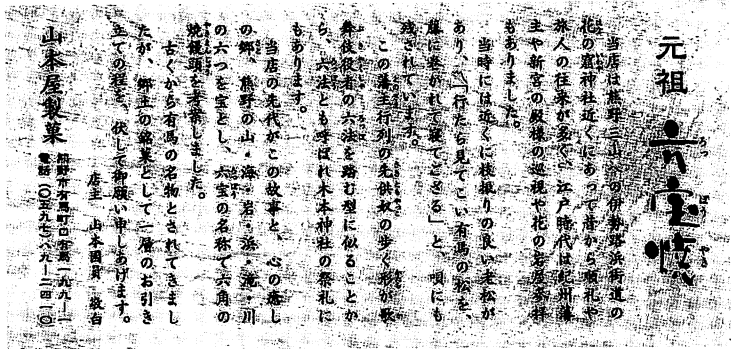 元祖 六宝焼
ろっぽうやき
当店は熊野三山への伊勢路浜街道の
花の窟神社近くにあって昔から順礼や
旅人の往来が多く、江戸時代は紀州藩
主や新宮の殿様の巡視や花の岩屋参拝
もありました。
当時には近くに枝振りの良い老松が
あり、「行たら見てこい有馬の松を、
藤に巻かれて寝てござる」と、唄にも
残されています。
この藩主行列の先供奴の歩く形が歌
舞伎役者の六法を踏む型に似ることか
ら、六法とも呼ばれ木本神社の祭礼に
もあります。
当店の先代がこの故事と、心の癒し
の郷、熊野の山・海・岩・浜・滝・川
の六つを宝とし、六宝の名称で六角の
焼饅頭を考案しました。
古くから有馬の名物とされてきまし
たが、郷土の銘菓として一層のお引き
立ての程を、伏して御願い申しあげます。
店主 山本國員 敬白
山本屋製菓
熊野市有馬町口有馬一九九-一
電話(〇五九七)八九-二四一〇